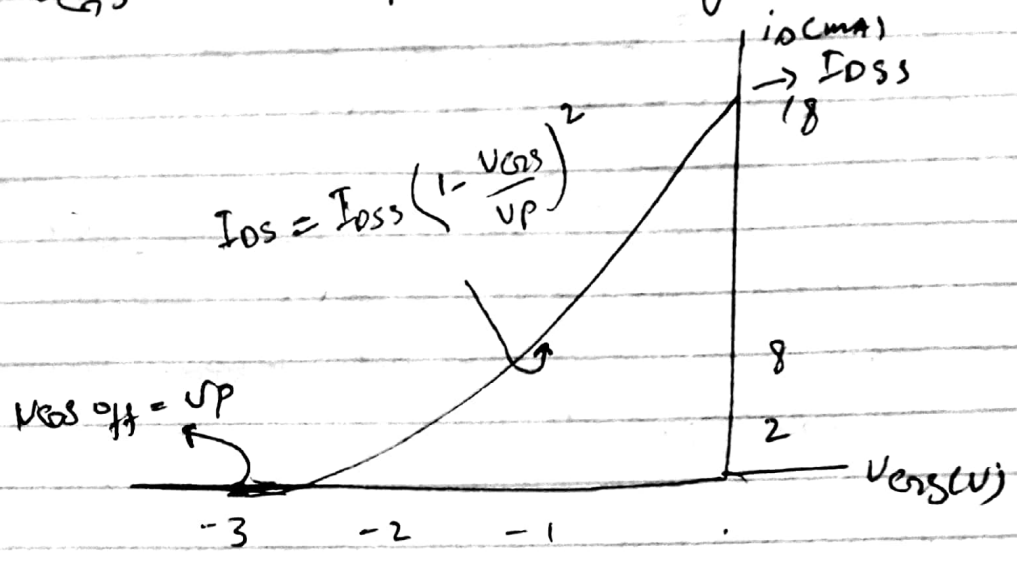 iD(mA)
→ IDSS
18
IDS = IDSS(1-VGS/VP)^2
8
VGS off = VP
2
VGS(V)
-3 -2 -1 .